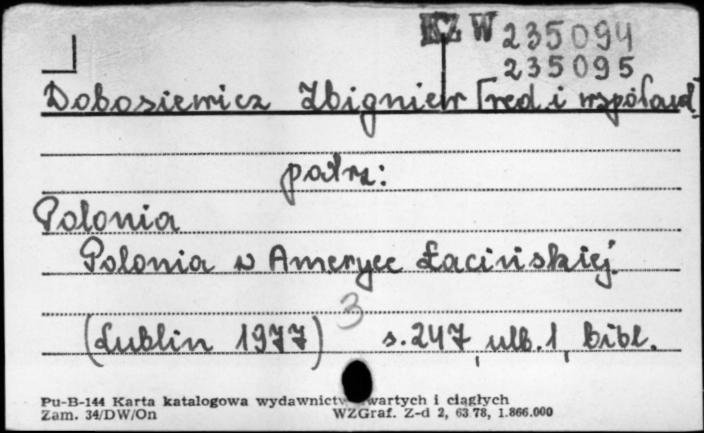 KZ W 235094
235095
Dobosiewicz Zbigniew [red. i współaut.]
patrz:
Polonia
Polonia w Ameryce Łacińskiej.
3
(Lublin 1977) s. 247, ulb. 1, bibl.
Pu-B-144 Karta katalogowa wydawnictw zwartych i ciągłych
Zam. 34/DW/On WZGraf. Z-d 2, 63 78, 1.866.000